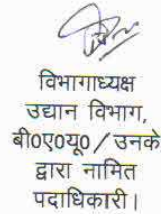 विभागाध्यक्ष
उद्यान विभाग,
बी०ए०यू० / उनके
द्वारा नामित
पदाधिकारी।